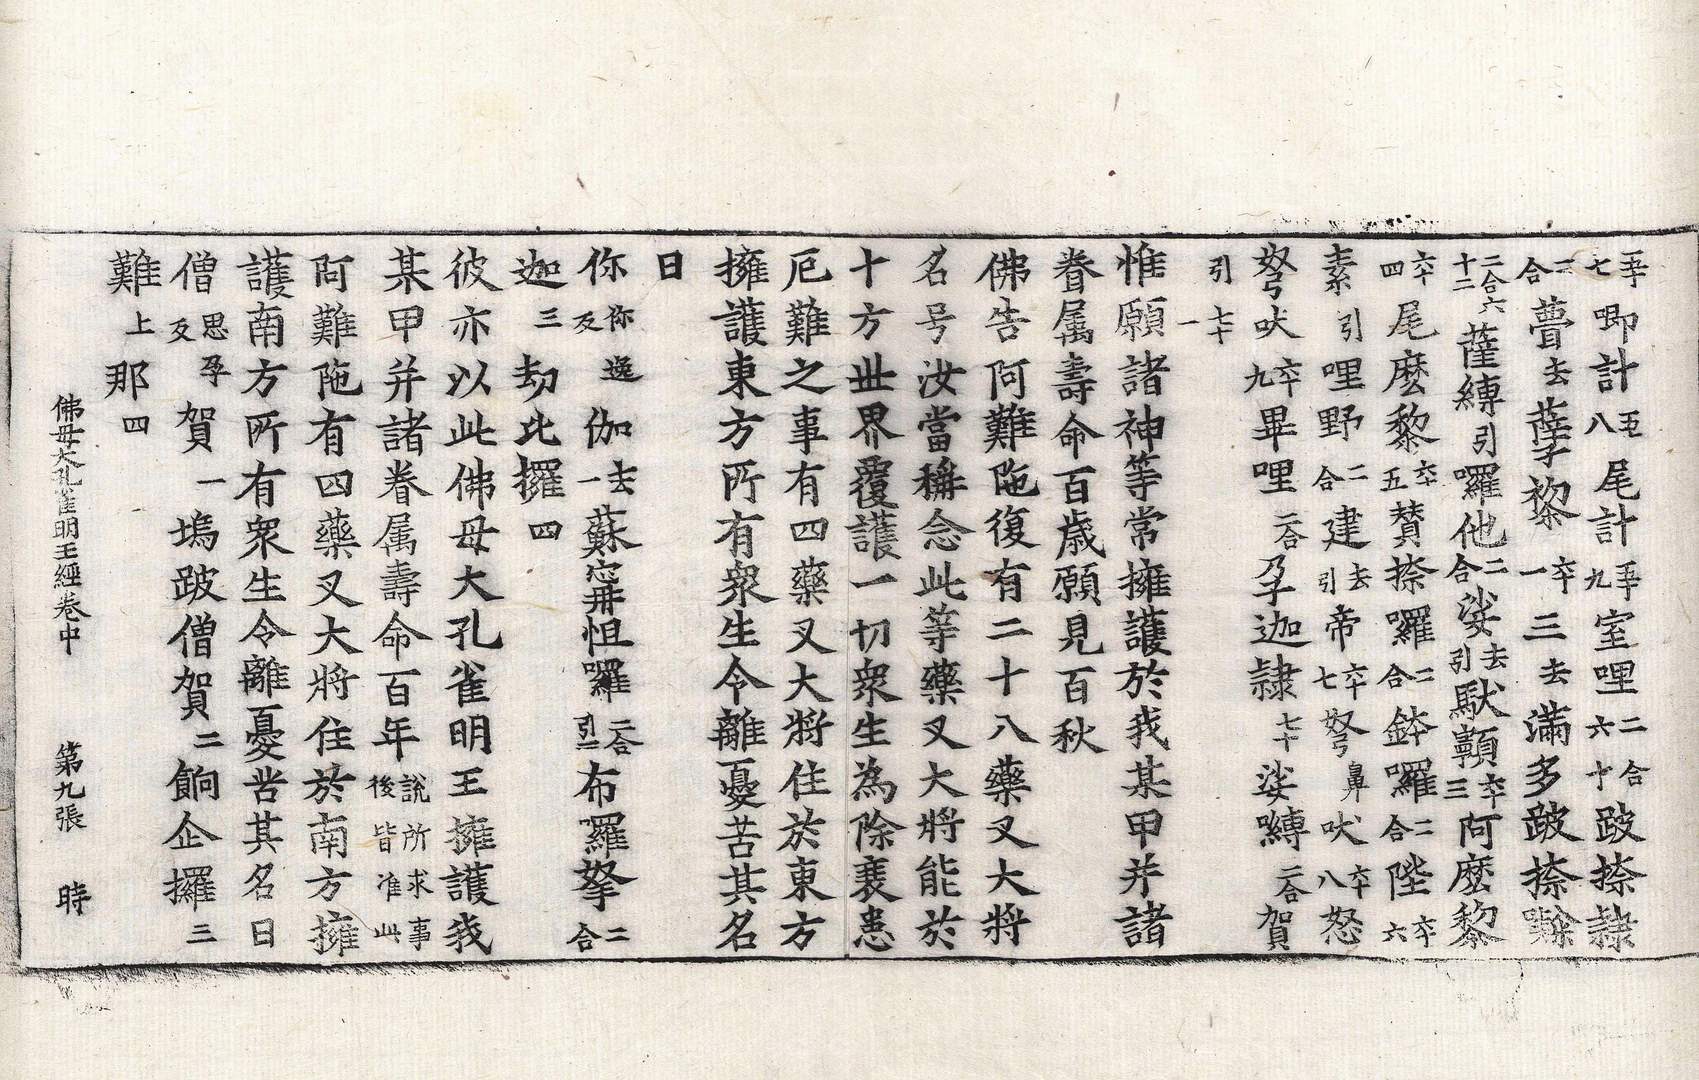 五十七唧計五十八尾計五十九室哩二合六十跛捺隸
二合薹去孽黎六十一三去滿多跛捺
二合六十二薩縛引囉他二合娑去引馱顙六十三阿麼黎
六十四尾麼黎六十五贊捺囉二合鉢囉二合陛六十六
素引哩野二合建去引帝六十七弩鼻吠六十八怒
弩吠六十九畢哩二合孕迦隸七十娑嚩二合賀
引七十一
惟願諸神等常擁護於我某甲并諸
眷属壽命百歲願見百秋
佛告阿難陁復有二十八藥叉大將
名号汝當稱念此等藥叉大將能於
十方世界覆護一切衆生為除衰患
厄難之事有四藥叉大將住於東方
擁護東方所有衆生令離憂苦其名
曰
你你逸反伽去一蘇寧怛囉二合引二布羅拏二合
迦三劫比攞四
彼亦以此佛母大孔雀明王擁護我
某甲并諸眷属壽命百年說所求事後皆准此
阿難陁有四藥叉大將住於南方擁
護南方所有衆生令離憂苦其名曰
僧思孕反賀一塢跛僧賀二餉企攞三
難上那四
佛母大孔雀明王經卷中 第九張 時